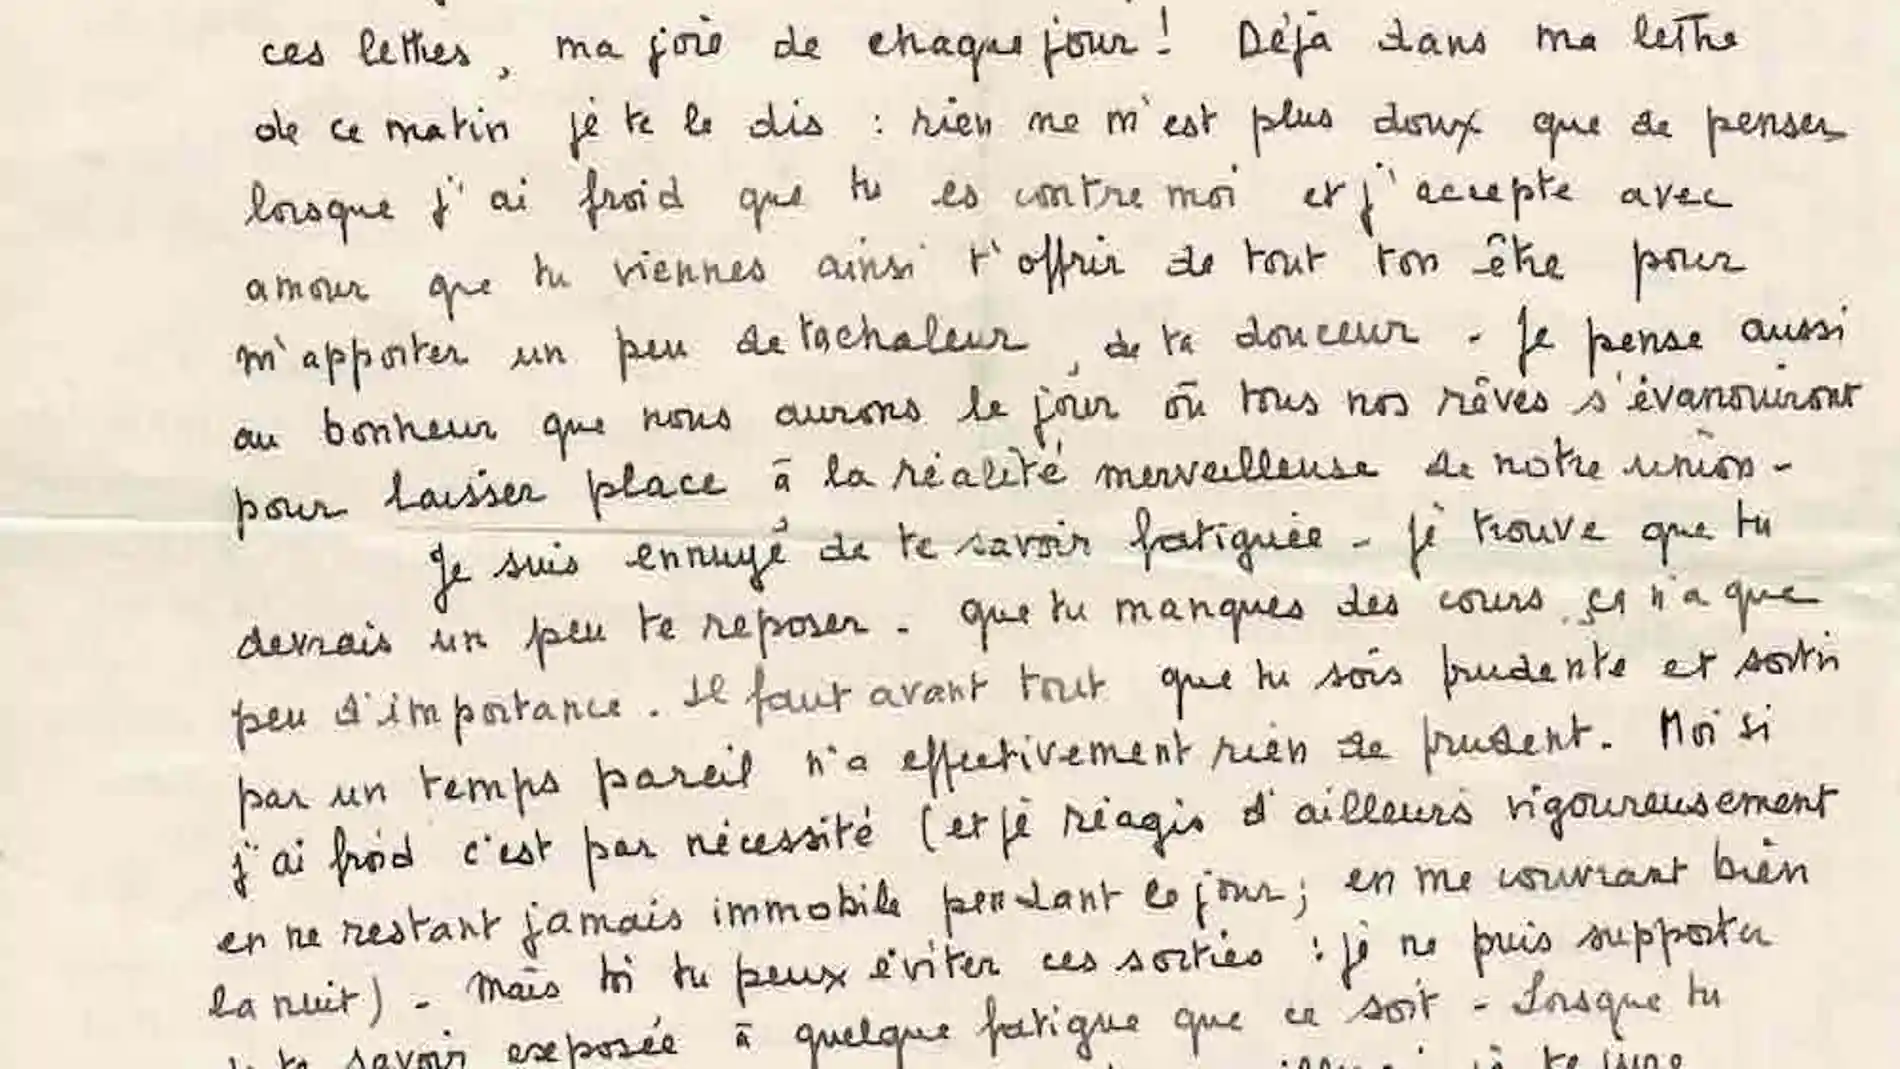 ces lettres, ma joie de chaque jour ! Déjà dans ma lettre
de ce matin je te le dis : rien ne m'est plus doux que de penser
lorsque j'ai froid que tu es contre moi et j'accepte avec
amour que tu viennes ainsi t'offrir de tout ton être pour
m'apporter un peu de ta chaleur, de ta douceur - Je pense aussi
au bonheur que nous aurons le jour où tous nos rêves s'évanouiront
pour laisser place à la réalité merveilleuse de notre union -
Je suis ennuyé de te savoir fatiguée - je trouve que tu
devrais un peu te reposer - que tu manques des cours, ça n'a que
peu d'importance. Il faut avant tout que tu sois prudente et sortir
par un temps pareil n'a effectivement rien de prudent. Moi si
j'ai froid c'est par nécessité (et je réagis d'ailleurs vigoureusement
en ne restant jamais immobile pendant le jour; en me couvrant bien
la nuit) - Mais toi tu peux éviter ces sorties : je ne puis supporter
de te savoir exposée à quelque fatigue que ce soit - Lorsque tu
je te jure